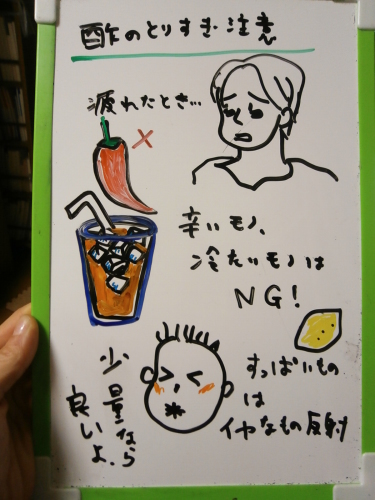 酢のとりすぎ注意
疲れたとき…
辛いモノ、
冷たいモノは
NG!
すっぱいもの
は
イヤなもの反射
少量なら
良いよ、